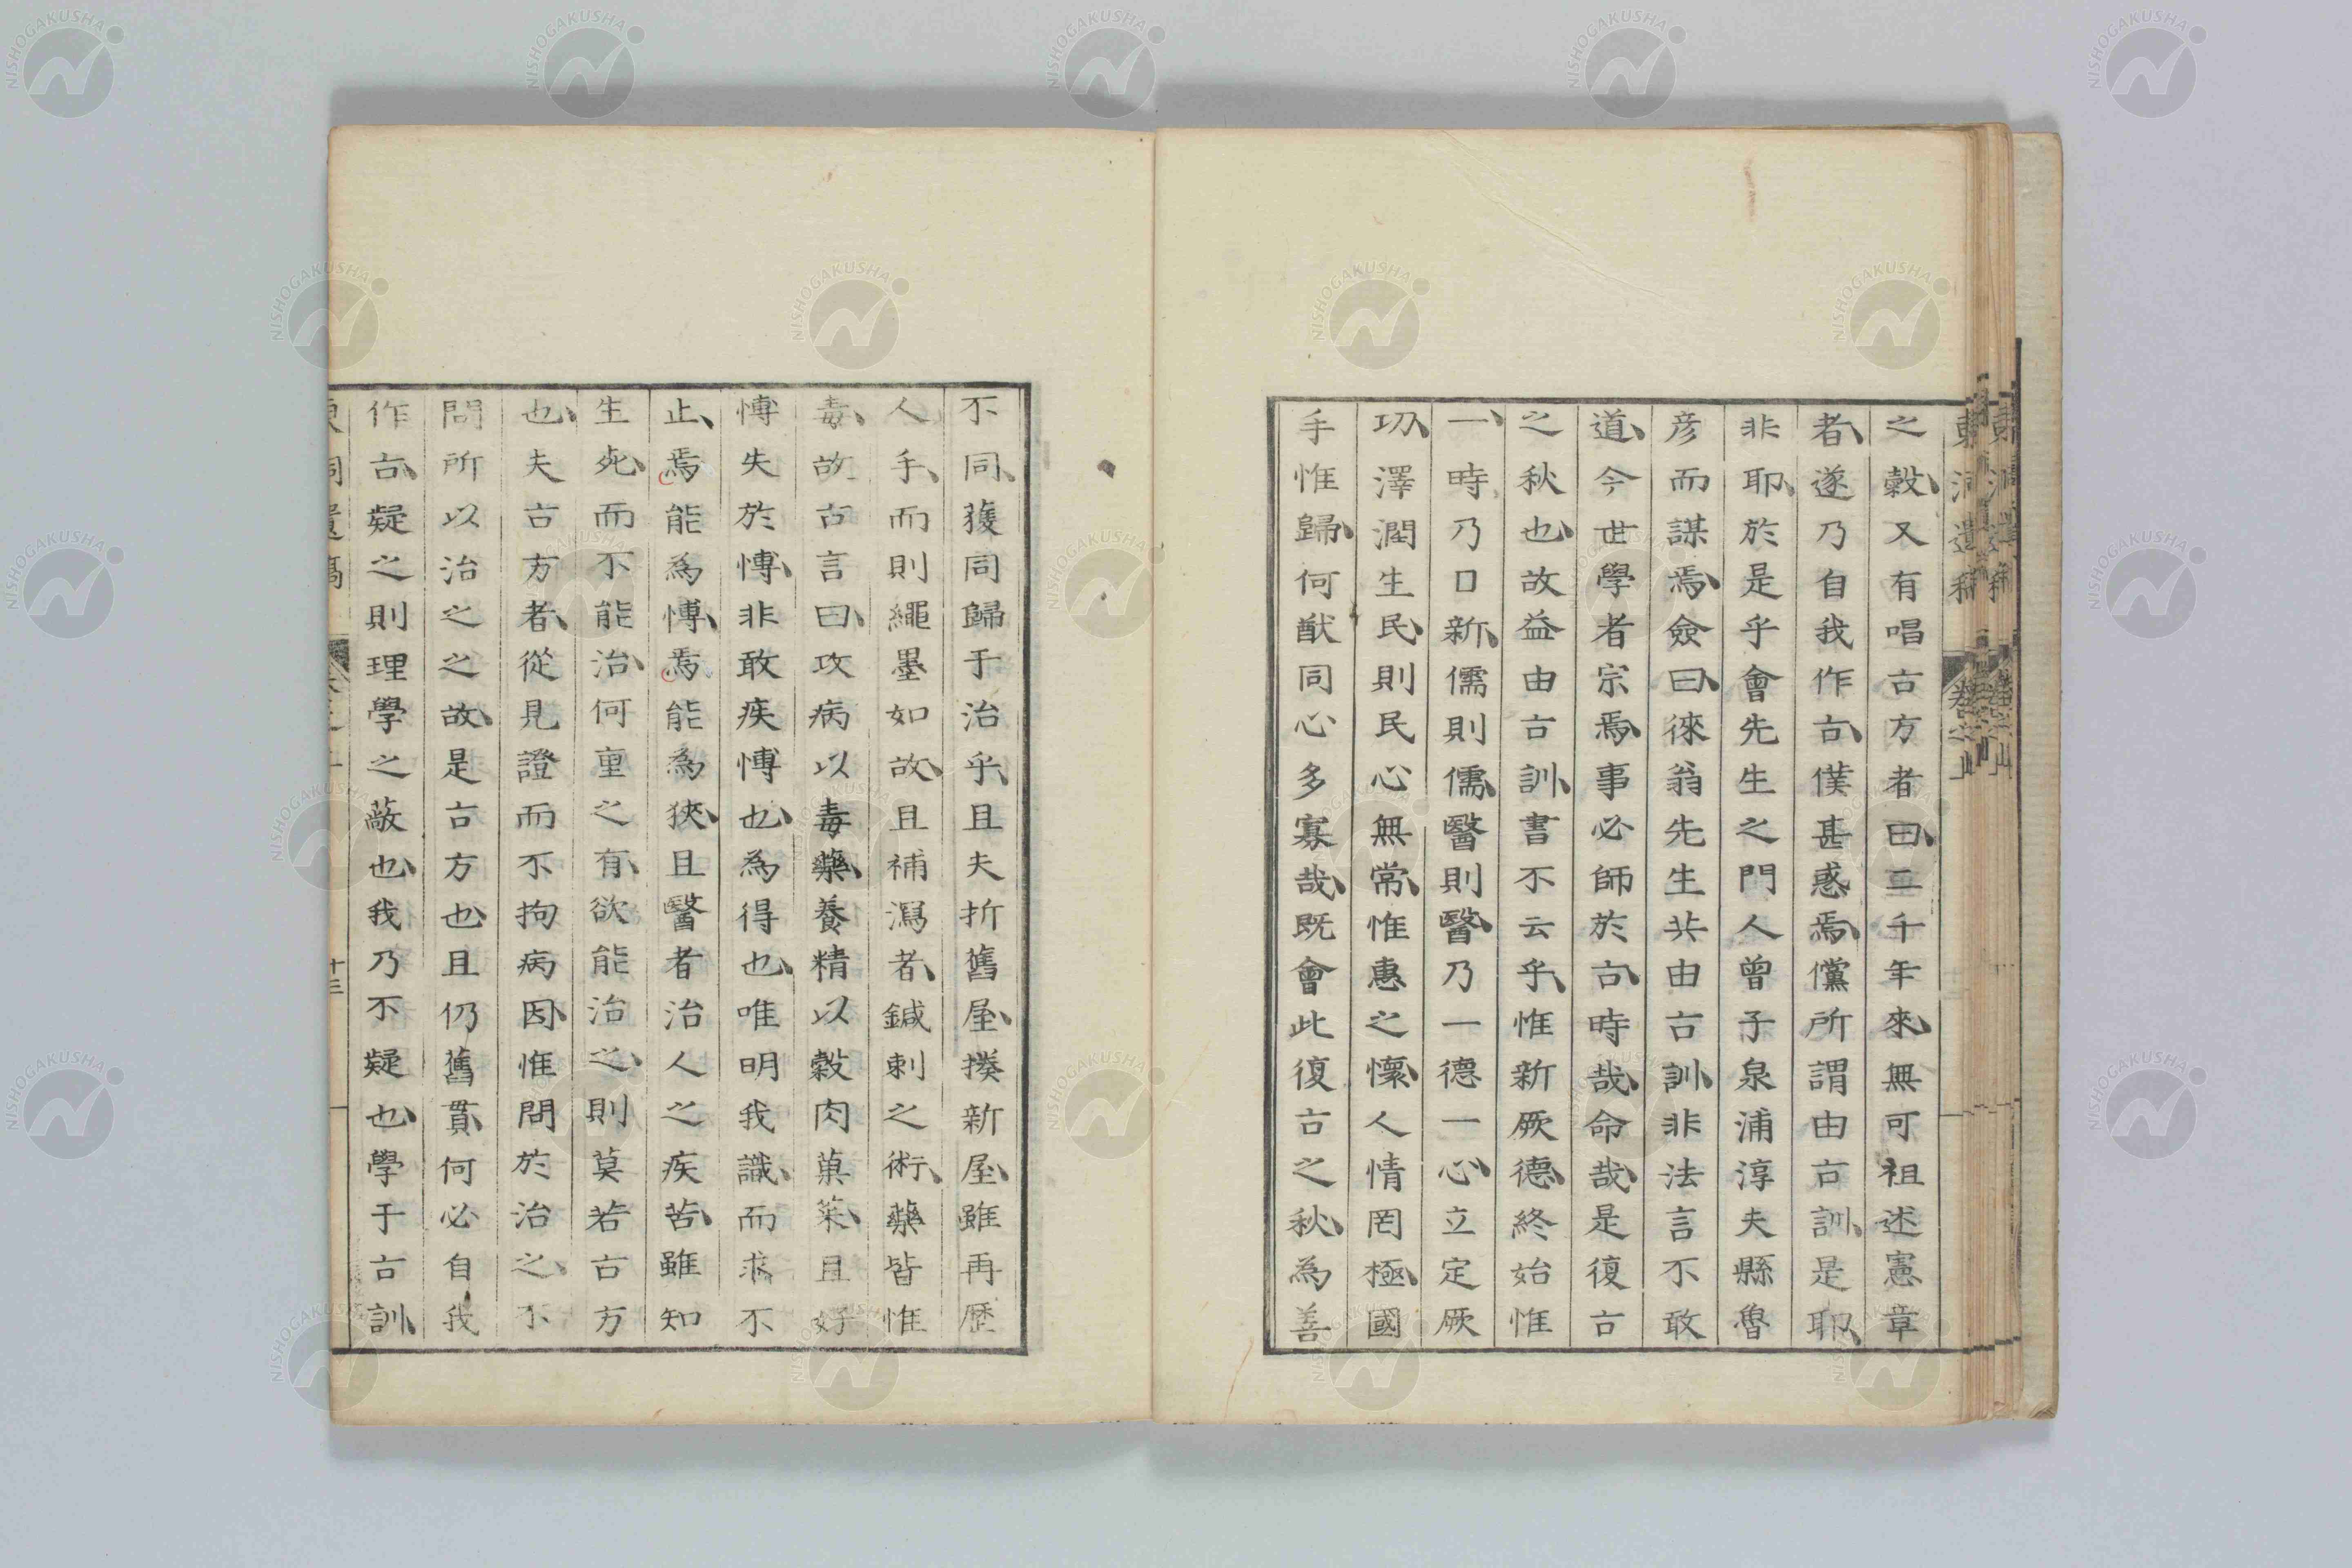 之穀又有唱古方者曰二千年來無可祖述憲章
者遂乃自我作古僕甚惑焉儻所謂由古訓是耶
非耶於是乎會先生之門人曾子泉浦淳夫縣魯
彥而謀焉僉曰徠翁先生共由古訓非法言不敢
道今世學者宗焉事必師於古時哉命哉是復古
之秋也故益由古訓書不云乎惟新厥德終始惟
一時乃日新儒則儒醫則醫乃一德一心立定厥
功澤潤生民則民心無常惟惠之懷人情罔極國
手惟歸何猷同心多寡哉既會此復古之秋為善
不同獲同歸于治乎且夫折舊屋揍新屋雖再歷
人手而則繩墨如故且補瀉者鍼刺之術藥皆惟
毒故古言曰攻病以毒藥養精以穀肉菓菜且好
慱失於慱非敢疾慱也為得也唯明我識而求不
止焉能為慱焉能為狹且醫者治人之疾苦雖知
生死而不能治何重之有欲能治之則莫若古方
也夫古方者從見證而不拘病因惟問於治之不
問所以治之之故是古方也且仍舊貫何必自我
作古疑之則理學之蔽也我乃不疑也學于古訓
東洞遺稿
十三
NISHOGAKUSHA